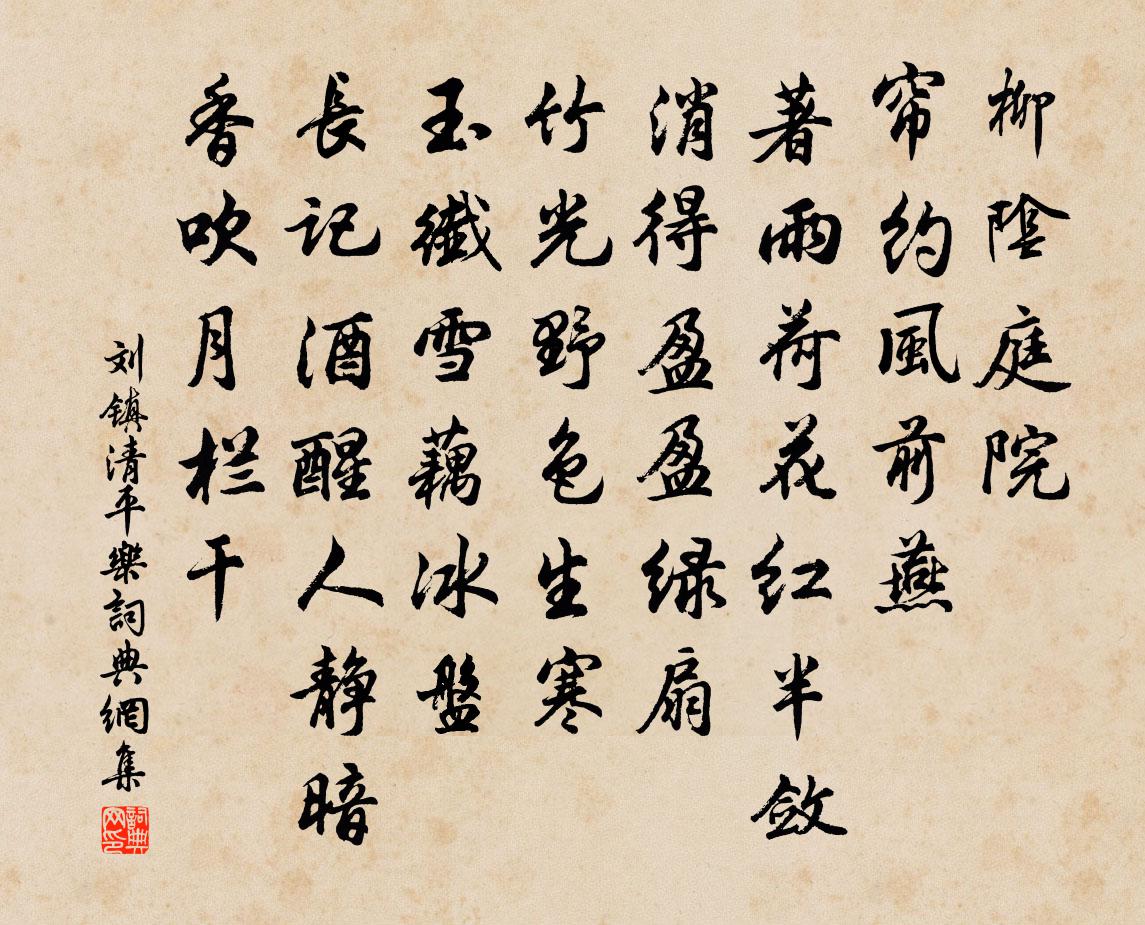 柳陰庭院
帘約風前燕
著雨荷花红半斂
消得盈盈绿扇
竹光野色生寒
玉纖雪藕冰盤
長记酒醒人静暗
香吹月栏干
刘镇清平樂詞典網集
詞典网印